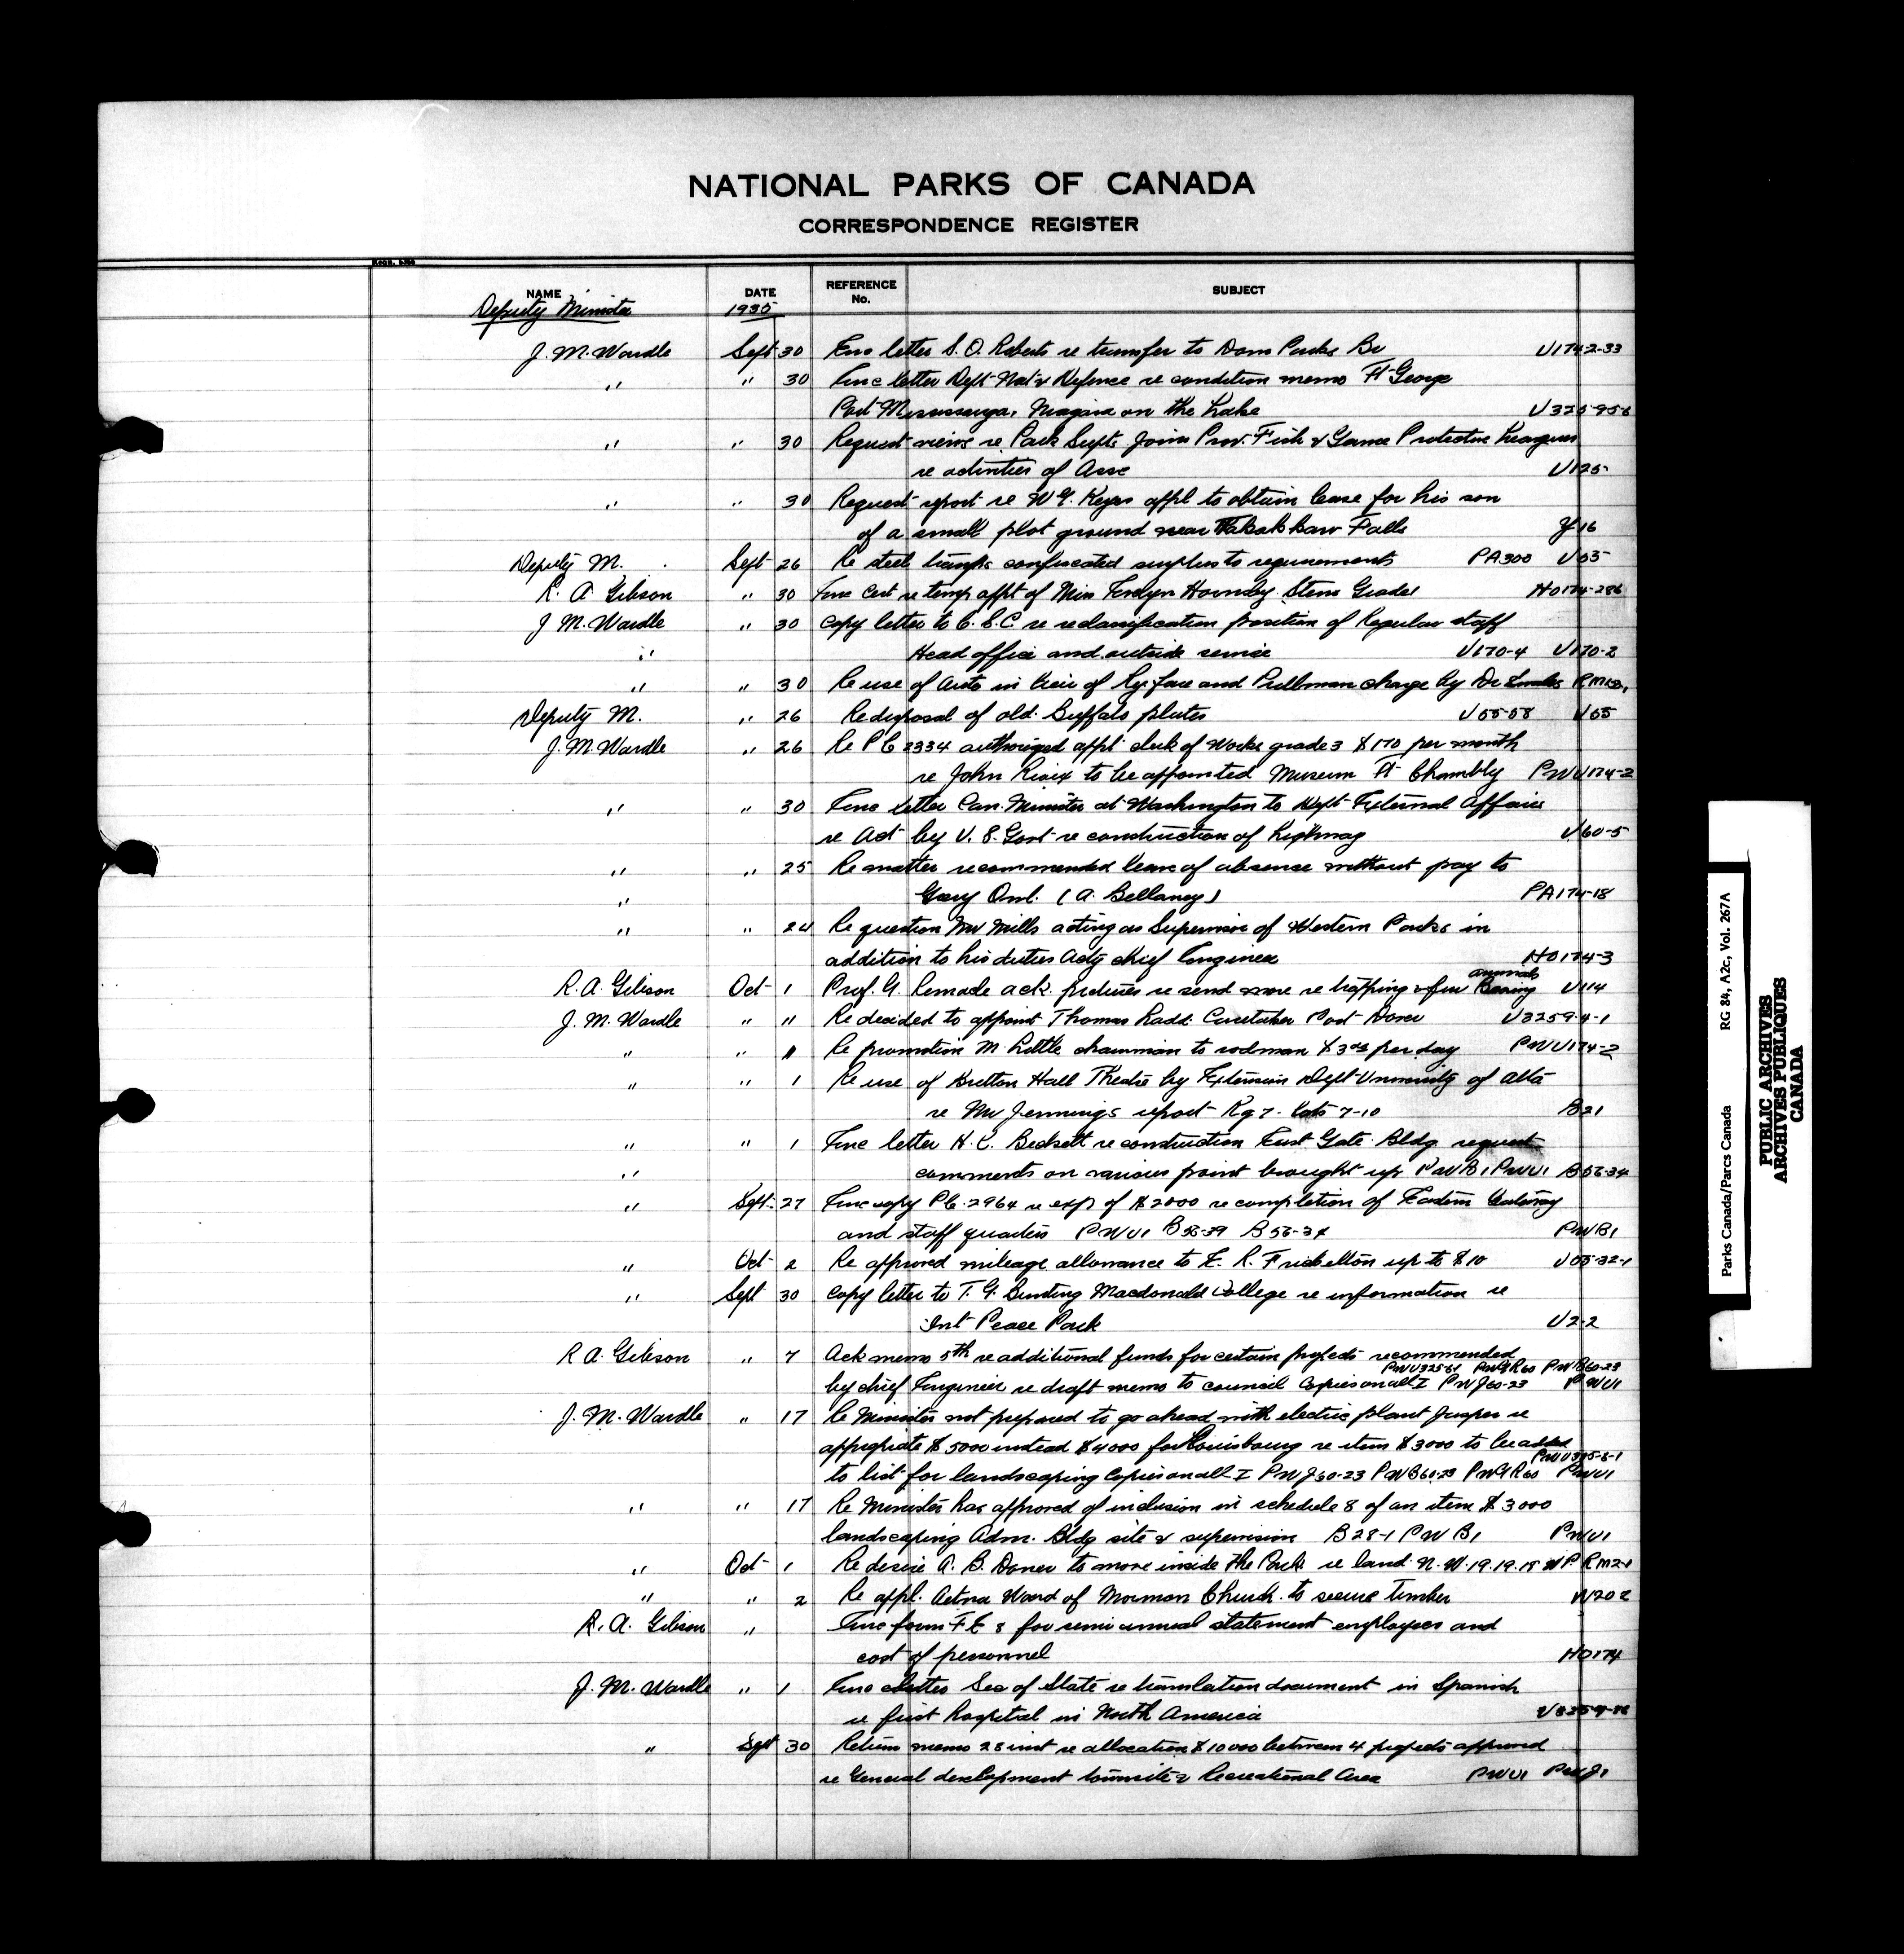 NATIONAL PARKS OF CANADA
CORRESPONDENCE REGISTER
NAME DATE REFERENCE No. SUBJECT
Deputy Minister 1935
J. M. Wardle Sept 30 Enc letter S. O. Roberts re transfer to Dom Parks Br U174-2-33
" " 30 Enc letter Dept Nat'l Defence re condition memo Ft George
Port Mississauga, Niagara on the Lake
" " 30 Request views re Park Supts Joins Prov. Fish & Game Protective Leagues
re activities of Assc U125
" " 30 Request report re W. G. Keyes appl to obtain lease for his son
of a small plot ground near Takakkaw Falls Y16
Deputy M. Sept 26 Re steel traps confiscated surplus to requirements PA300 U55
R. A. Gibson " 30 Enc Cert re temp appt of Miss Evelyn Hornby Steno Grade 1 HO174-286
J. M. Wardle " 30 Copy letter to C. S. C. re reclassification position of Regular staff
" Head office and outside service U170-4 U170-2
" " 30 Re use of Auto in lieu of Ry. fare and Pullman charge by Dr
Deputy M. " 26 Re disposal of old Buffalo plates U55-58 U55
J. M. Wardle " 26 Re P C 2334 authorized appt clerk of Works grade 3 $170 per month
re John to be appointed Museum Ft Chambly PWU174-2
" " 30 Enc letter Can. Minister at Washington to Dept External Affairs
re Act by U. S. Govt re construction of highway U60-5
" " 25 Re matter recommended leave of absence without pay to
" Grey Owl. (A. Bellaney) PA174-18
" " 24 Re question Mr Mills acting as Supervisor of Western Parks in
addition to his duties Actg chief Engineer HO174-3
animals
R. A. Gibson Oct 1 Prof. G. ack. pictures re send more re trapping & fur Bearing U114
J. M. Wardle " " Re decided to appoint Thomas Ladd Caretaker Port Dover U3259-4-1
" " " Re promotion M. Little chainman to rodman $3 per day PWU174-2
" " 1 Re use of Bretton Hall Theatre by Extension Dept University of Alta
re Mr Jennings report Kg7- 7-10 B21
" " 1 Enc letter H. C. Beckett re construction East Gate Bldg request
" comments on various point brought up PWB1 PWU1 B56-34
" Sept 27 Enc copy P C. 2964 re exp of $2000 re completion of Eastern Gateway
and staff quarters PWU1 B56-39 B56-34 PWB1
" Oct 2 Re approved mileage allowance to E. R. Frickelton up to $10 U55-32-1
" Sept 30 Copy letter to T. G. Bunting Macdonald College re information re
Int Peace Park U2-2
R A. Gibson " 7 Ack memo 5th re additional funds for certain projects recommended
PWU325-61 PWGR60 PWB60-23
by chief Engineer re draft memo to council Copies on all I PWJ60-23 PWU1
J. M. Wardle " 17 Re Minister not prepared to go ahead with electric plant Jasper re
appropriate $5000 instead $4000 for Louisbourg re item $3000 to be added
to list for landscaping Copies on all I PWJ60-23 PWB60-23 PWGR60 PWU1
" " 17 Re Minister has approved of inclusion in schedule 8 of an item $3000
landscaping Adm. Bldg site & supervision B28-1 PWB1 PWU1
" Oct 1 Re desire A. B. Doner to move inside the Park re land N. W. 19.19.18 WP. RM2-1
" " 2 Re appl. Aetna Ward of Mormon Church to secure timber W202
R. A. Gibson " Enc form F E 8 for semi annual statement employees and
cost of personnel HO174
J. M. Wardle " 1 Enc letter Sec of State re translation document in Spanish
re first hospital in North America
" Sept 30 Return memo 28 inst re allocation $10000 between 4 projects approved
re General development townsite & Recreational Area PWU1 PWJ1
Parks Canada/Parcs Canada RG 84, A2c, Vol. 267A
PUBLIC ARCHIVES
ARCHIVES PUBLIQUES
CANADA